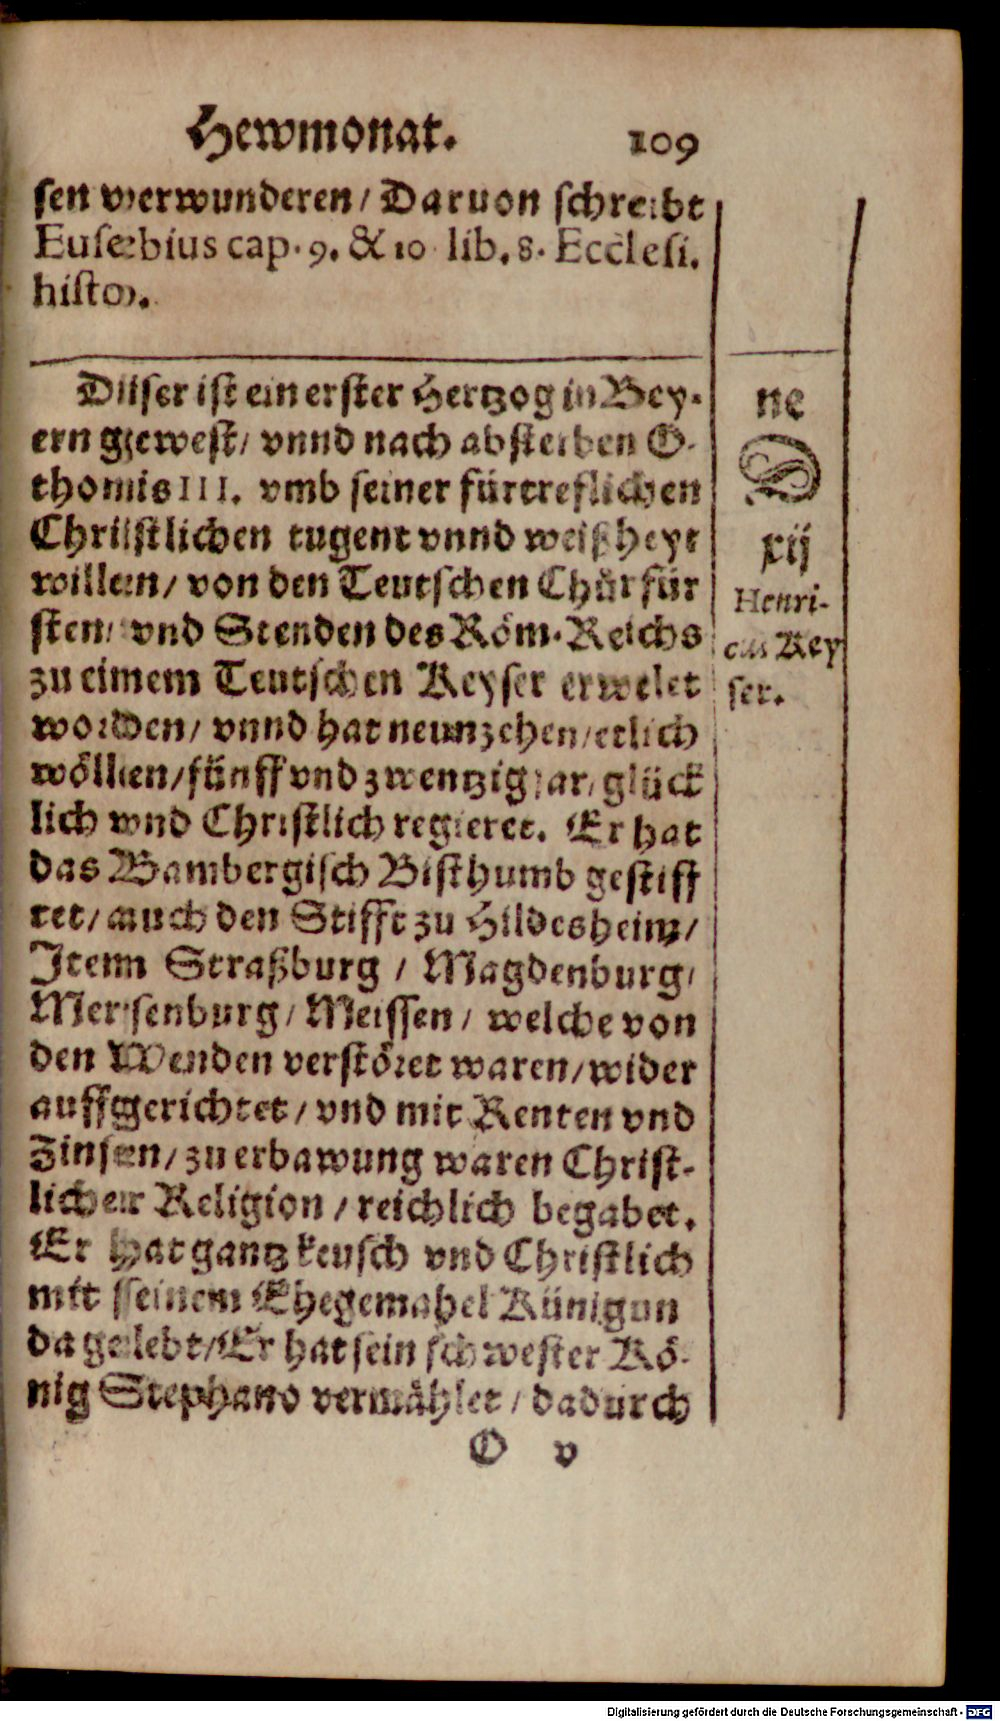 Hewmonat. 109
sen verwunderen / Daruon schreibt
Eusebius cap. 9. & 10 lib. 8. Ecclesi.
histor.
Diser ist ein erster Hertzog in Bey-
ern gewest / vnnd nach absterben O-
thomis III. vmb seiner fürtreflichen
Christlichen tugent vnnd weißheyt
willen / von den Teutschen Chůrfür
sten / vnd Stenden des Röm. Reichs
zu einem Teutschen Keyser erwelet
worden / vnnd hat neunzehen / etlich
wöllen / fünff vnd zwentzig jar / glück
lich vnd Christlich regieret. Er hat
das Bambergisch Bisthumb gestiff
tet / auch den Stifft zu Hildesheim /
Item Straßburg / Magdenburg /
Mersenburg / Meissen / welche von
den Wenden verstöret waren / wider
auffgerichtet / vnd mit Renten vnd
Zinsen / zu erbawung waren Christ-
licher Religion / reichlich begabet.
Er hat gantz keusch vnd Christlich
mit seinem Ehegemahel Künigun
da gelebt / Er hat sein schwester Kö-
nig Stephano vermählet / dadurch
O v
ne
D
xij
Henri-
cus Key
ser.
Digitalisierung gefördert durch die Deutsche Forschungsgemeinschaft - DFG